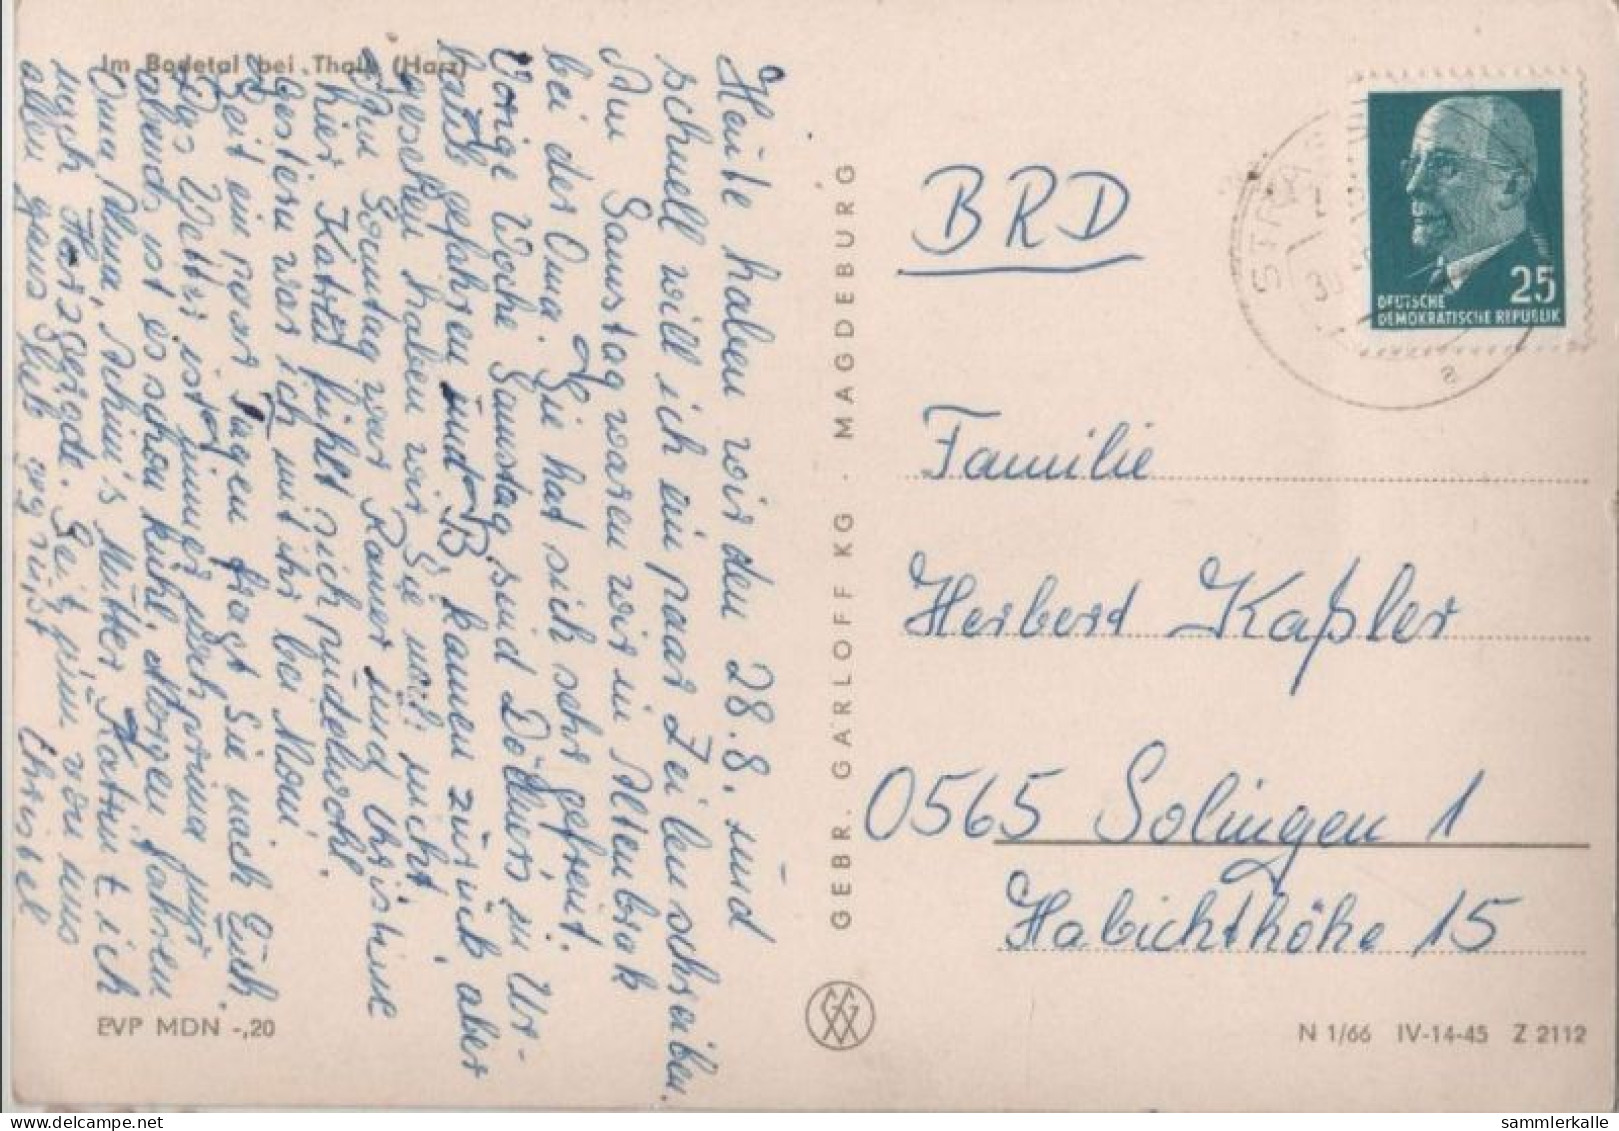 Im Bodetal bei Thale (Harz)
Heute haben wir den 28.8. und
schnell will ich ein paar Zeilen schreiben.
Am Samstag waren wir in Altenbrak
bei der Oma. Sie hat sich sehr gefreut.
Vorige Woche Samstag sind Döllners in Ur-
laub gefahren und B. kamen zurück aber
gesehen haben wir Sie noch nicht.
Am Sonntag war Rainer und Christine
hier. Katrin fühlt sich pudelwohl.
Gestern war ich mit ihr bei Moni.
Seit ein paar Tagen fragt Sie nach Euch.
Das Wetter ist immer noch prima nur
abends ist es schon kühl. Morgen fahren
Oma Alma, Achim's Mutter, Katrin + ich
nach Harzgerode. Seit für von uns
allen ganz lieb gegrüßt Christel
EVP MDN -,20
GEBR. GARLOFF KG · MAGDEBURG
BRD
25
DEUTSCHE
DEMOKRATISCHE REPUBLIK
Familie
Herbert Kaßler
0565 Solingen 1
Habichthöhe 15
N 1/66 IV-14-45 Z 2112
sammlerkalle